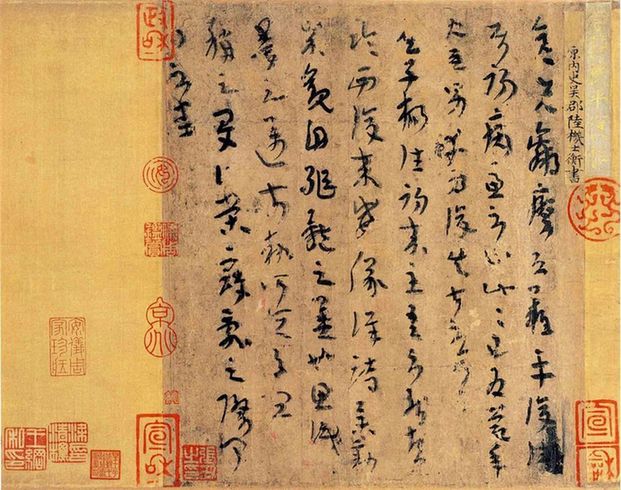 晉內史吳郡陸機士衡書
彥先羸瘵恐難平復往屬
初病慮不止此此已為慶承
使唯男幸為復失前憂耳吳
子楊往初來主吾不能盡
臨西復來威儀詳跱舉動
成觀自軀體之美也思識
量之邁前執所恆有宜
稱之夏伯榮寇亂之際聞
問不悉
政和
宣和
宣和
安儀周家珍藏